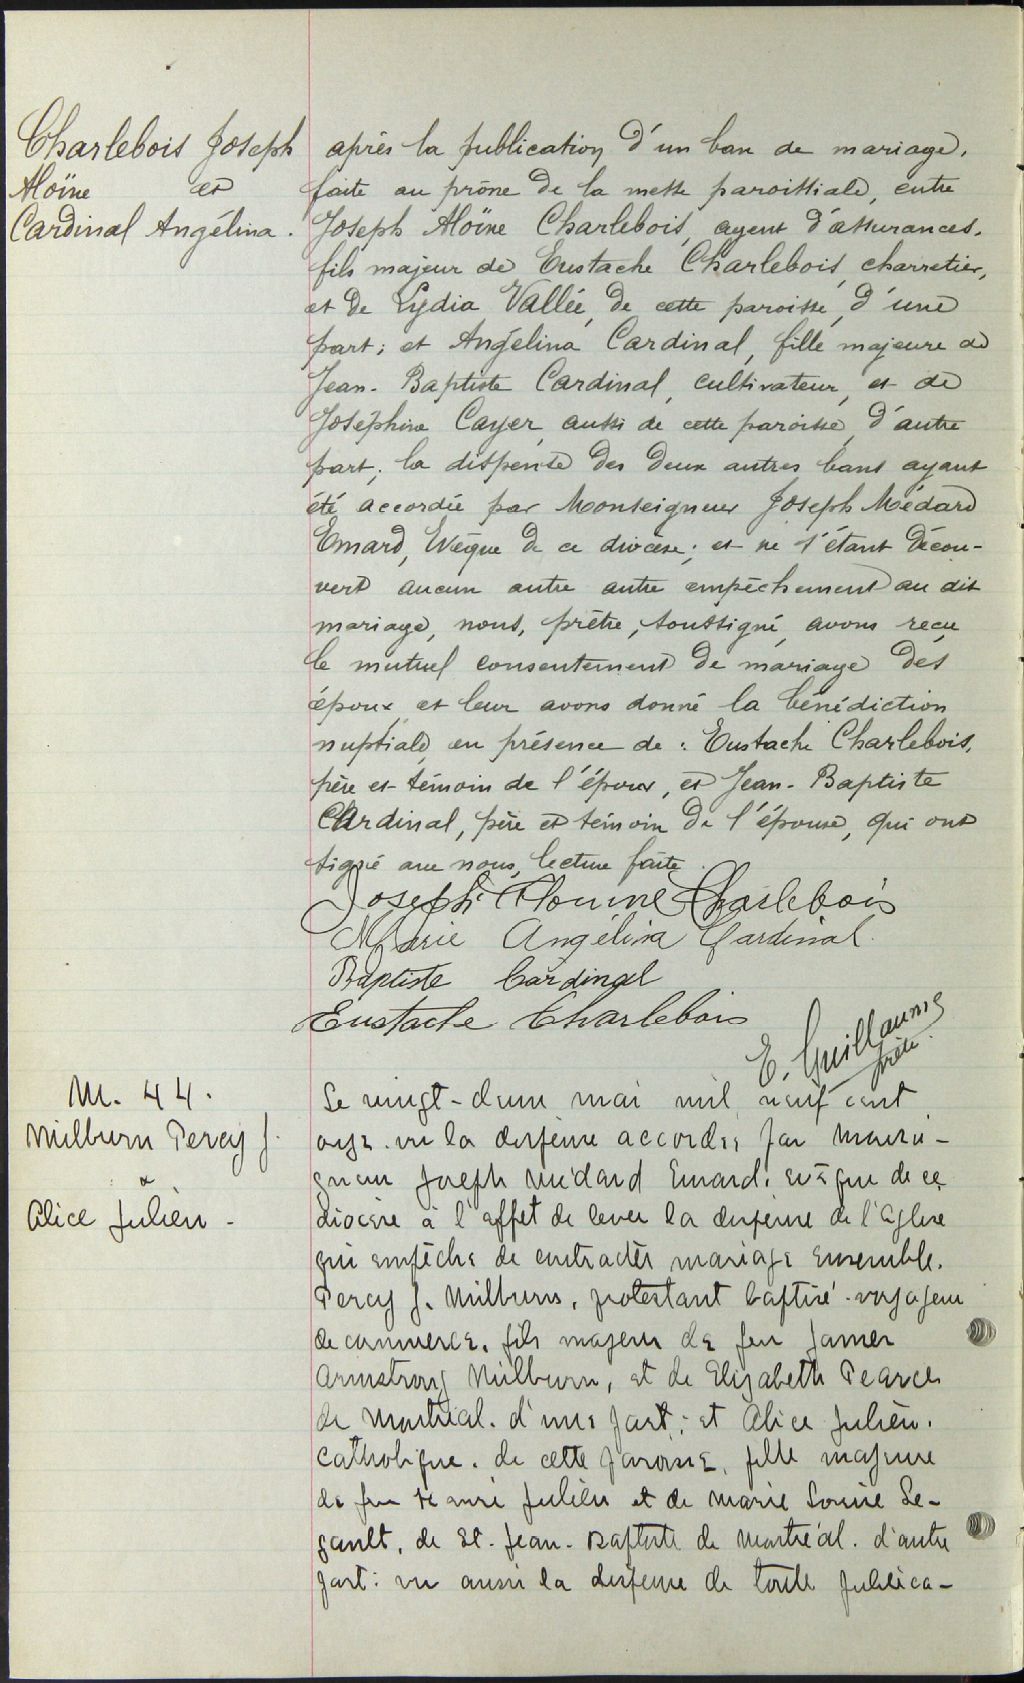 Charlebois Joseph
Aloïne et
Cardinal Angélina.
après la publication d'un ban de mariage,
faite au prône de la messe paroissiale, entre
Joseph Aloïne Charlebois, agent d'assurances,
fils majeur de Eustache Charlebois, charretier,
et de Lydia Vallée, de cette paroisse, d'une
part; et Angélina Cardinal, fille majeure de
Jean-Baptiste Cardinal, cultivateur, et de
Joséphine Cayer, aussi de cette paroisse, d'autre
part; la dispense des deux autres bans ayant
été accordée par Monseigneur Joseph Médard
Emard, Evêque de ce diocèse; et ne s'étant décou-
vert aucun autre autre empêchement au dit
mariage, nous, prêtre, soussigné, avons reçu
le mutuel consentement de mariage des
époux et leur avons donné la bénédiction
nuptiale en présence de: Eustache Charlebois,
père et témoin de l'époux, et Jean-Baptiste
Cardinal, père et témoin de l'épouse, qui ont
signé avec nous, lecture faite.
Joseph Charlebois
Marie Angélina Cardinal.
Baptiste Cardinal
Eustache Charlebois
E. Guillaume
prêtre.
M. 44.
Milburn Percy J.
&
Alice Julien -
Le vingt-deux mai mil neuf cent
onze. vu la dispense accordée par Monsei-
gneur Joseph Médard Emard, évêque de ce
diocèse à l'effet de lever la défense de l'Eglise
qui empêche de contracter mariage ensemble.
Percy J. Milburn, protestant baptisé - voyageur
de commerce, fils majeur de feu James
Armstrong Milburn, et de Elizabeth Pearce
de Montréal. d'une part; et Alice Julien.
catholique. de cette paroisse, fille majeure
de feu Henri Julien et de Marie Louise Le-
gault, de St. Jean-Baptiste de Montréal. d'autre
part: vu aussi la dispense de toute publica-